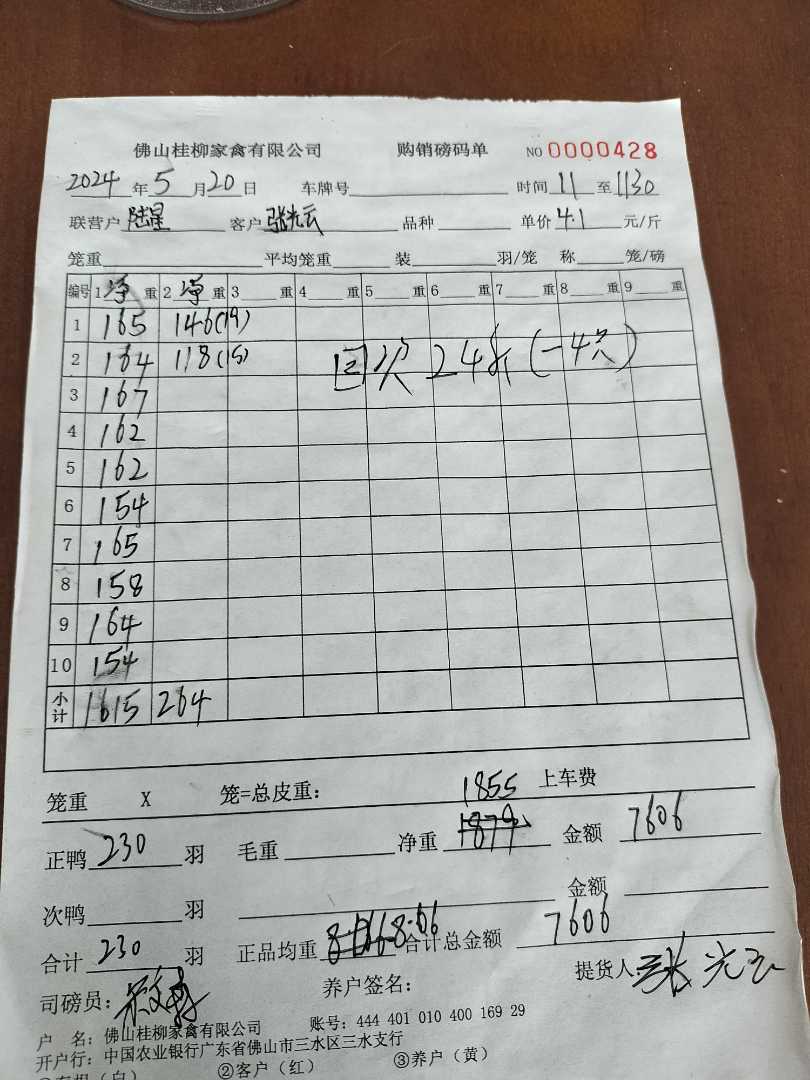 佛山桂柳家禽有限公司 购销磅码单 NO 0000428
2024 年 5 月 20 日 车牌号 时间 11 至 1130
联营户 陆星 客户 张光云 品种 单价 4.1 元/斤
笼重 平均笼重 装 羽/笼 称 笼/磅
编号 1 净 重 2 净 重 3 重 4 重 5 重 6 重 7 重 8 重 9 重
1 165 146(19)
2 164 118(15) 回次 24斤 (-4只)
3 167
4 162
5 162
6 154
7 165
8 158
9 164
10 154
小计 1615 264
笼重 X 笼=总皮重: 1855 上车费
正鸭 230 羽 毛重 净重 1879 金额 7606
次鸭 羽 金额
合计 230 羽 正品均重 8.06 合计总金额 7606
司磅员: 养户签名: 提货人 张光云
户 名: 佛山桂柳家禽有限公司 账号: 444 401 010 400 169 29
开户行: 中国农业银行广东省佛山市三水区三水支行
②客户 (红) ③养户 (黄)